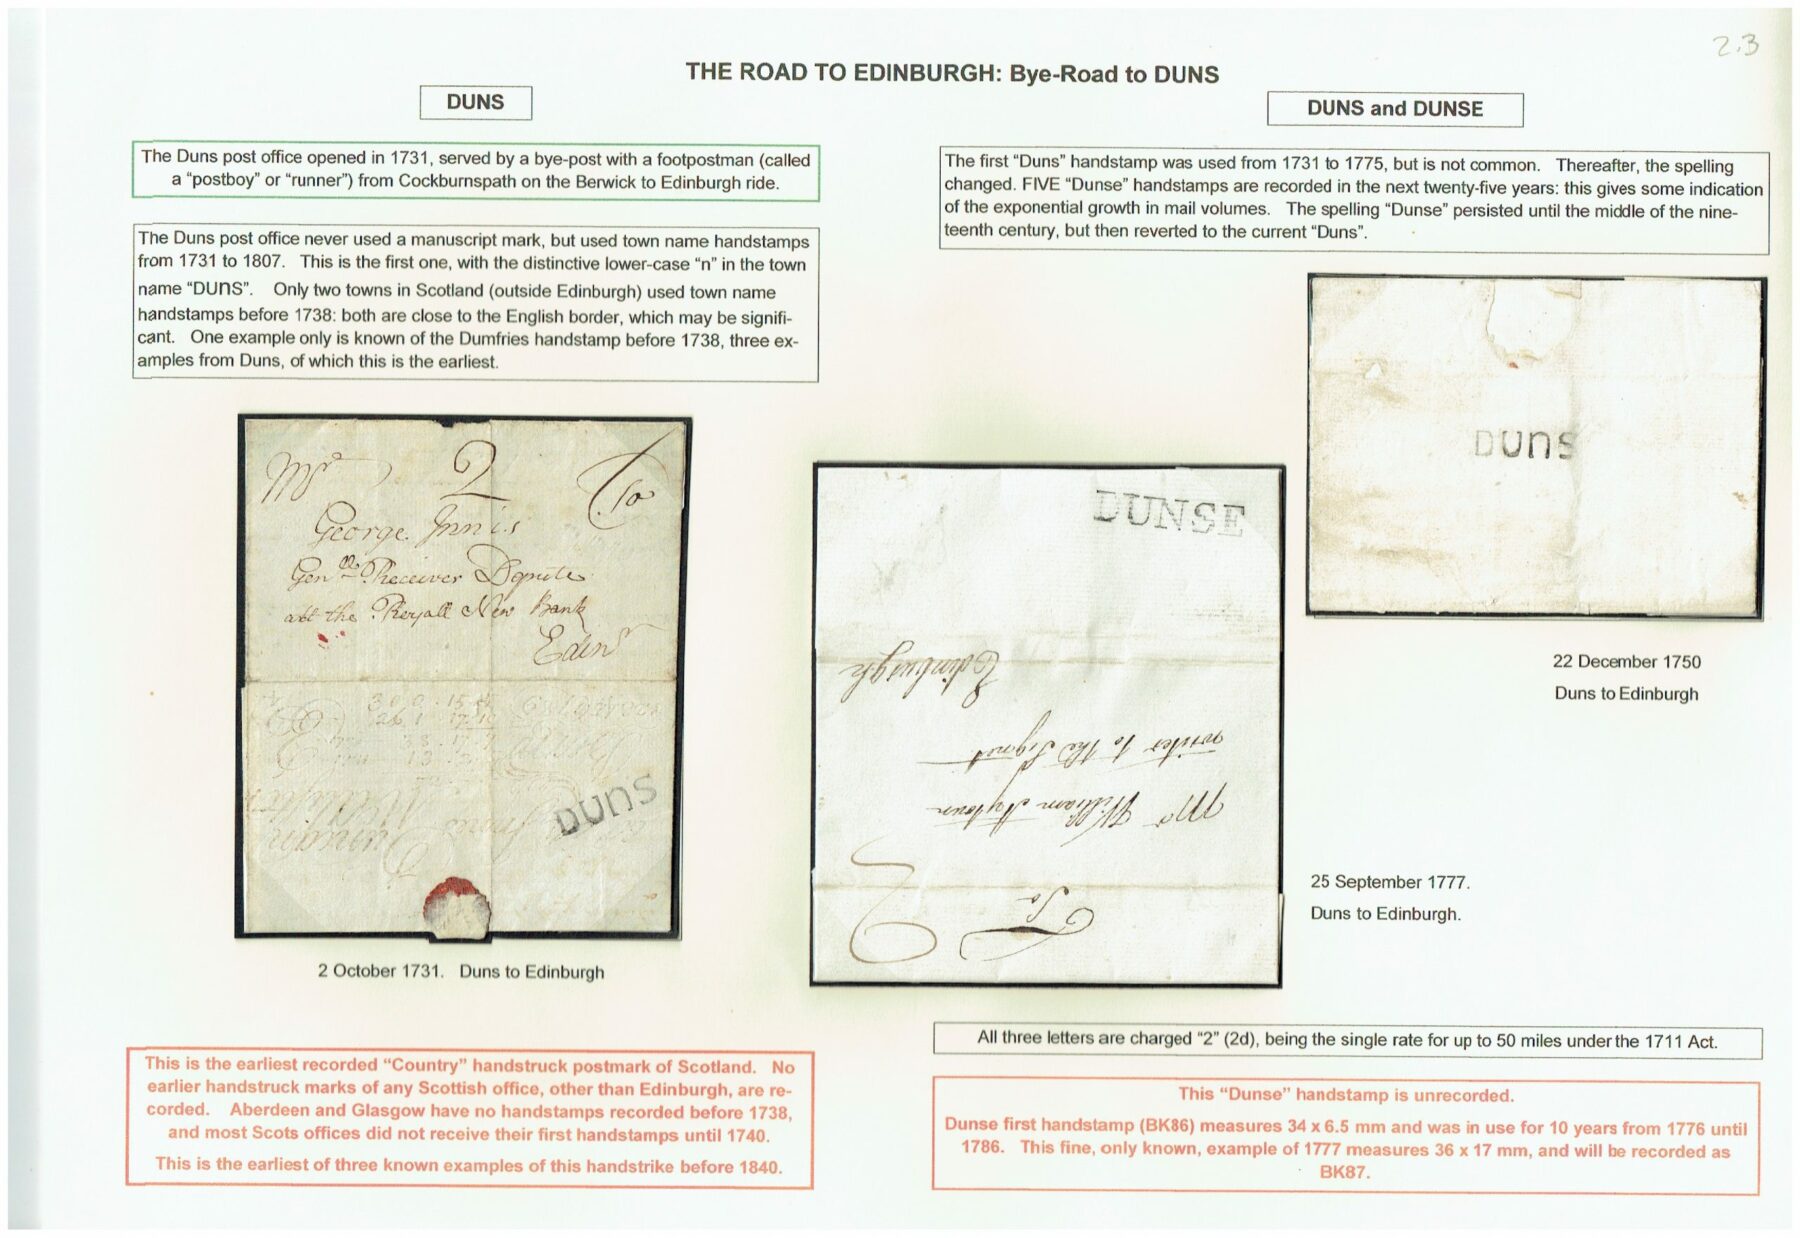 2.3
THE ROAD TO EDINBURGH: Bye-Road to DUNS
DUNS
The Duns post office opened in 1731, served by a bye-post with a footpostman (called
a “postboy” or “runner”) from Cockburnspath on the Berwick to Edinburgh ride.
The Duns post office never used a manuscript mark, but used town name handstamps
from 1731 to 1807. This is the first one, with the distinctive lower-case “n” in the town
name “DUnS”. Only two towns in Scotland (outside Edinburgh) used town name
handstamps before 1738: both are close to the English border, which may be signifi-
cant. One example only is known of the Dumfries handstamp before 1738, three ex-
amples from Duns, of which this is the earliest.
Mr 2 To
George Innis
Genll Receiver Depute
att the Royall New Bank
Edinr
DUnS
2 October 1731. Duns to Edinburgh
This is the earliest recorded “Country” handstruck postmark of Scotland. No
earlier handstruck marks of any Scottish office, other than Edinburgh, are re-
corded. Aberdeen and Glasgow have no handstamps recorded before 1738,
and most Scots offices did not receive their first handstamps until 1740.
This is the earliest of three known examples of this handstrike before 1840.
DUNS and DUNSE
The first “Duns” handstamp was used from 1731 to 1775, but is not common. Thereafter, the spelling
changed. FIVE “Dunse” handstamps are recorded in the next twenty-five years: this gives some indication
of the exponential growth in mail volumes. The spelling “Dunse” persisted until the middle of the nine-
teenth century, but then reverted to the current “Duns”.
DUnS
22 December 1750
Duns to Edinburgh
DUNSE
To
2
Mr William
writer to the Signet
Edinburgh
25 September 1777.
Duns to Edinburgh.
All three letters are charged “2” (2d), being the single rate for up to 50 miles under the 1711 Act.
This “Dunse” handstamp is unrecorded.
Dunse first handstamp (BK86) measures 34 x 6.5 mm and was in use for 10 years from 1776 until
1786. This fine, only known, example of 1777 measures 36 x 17 mm, and will be recorded as
BK87.